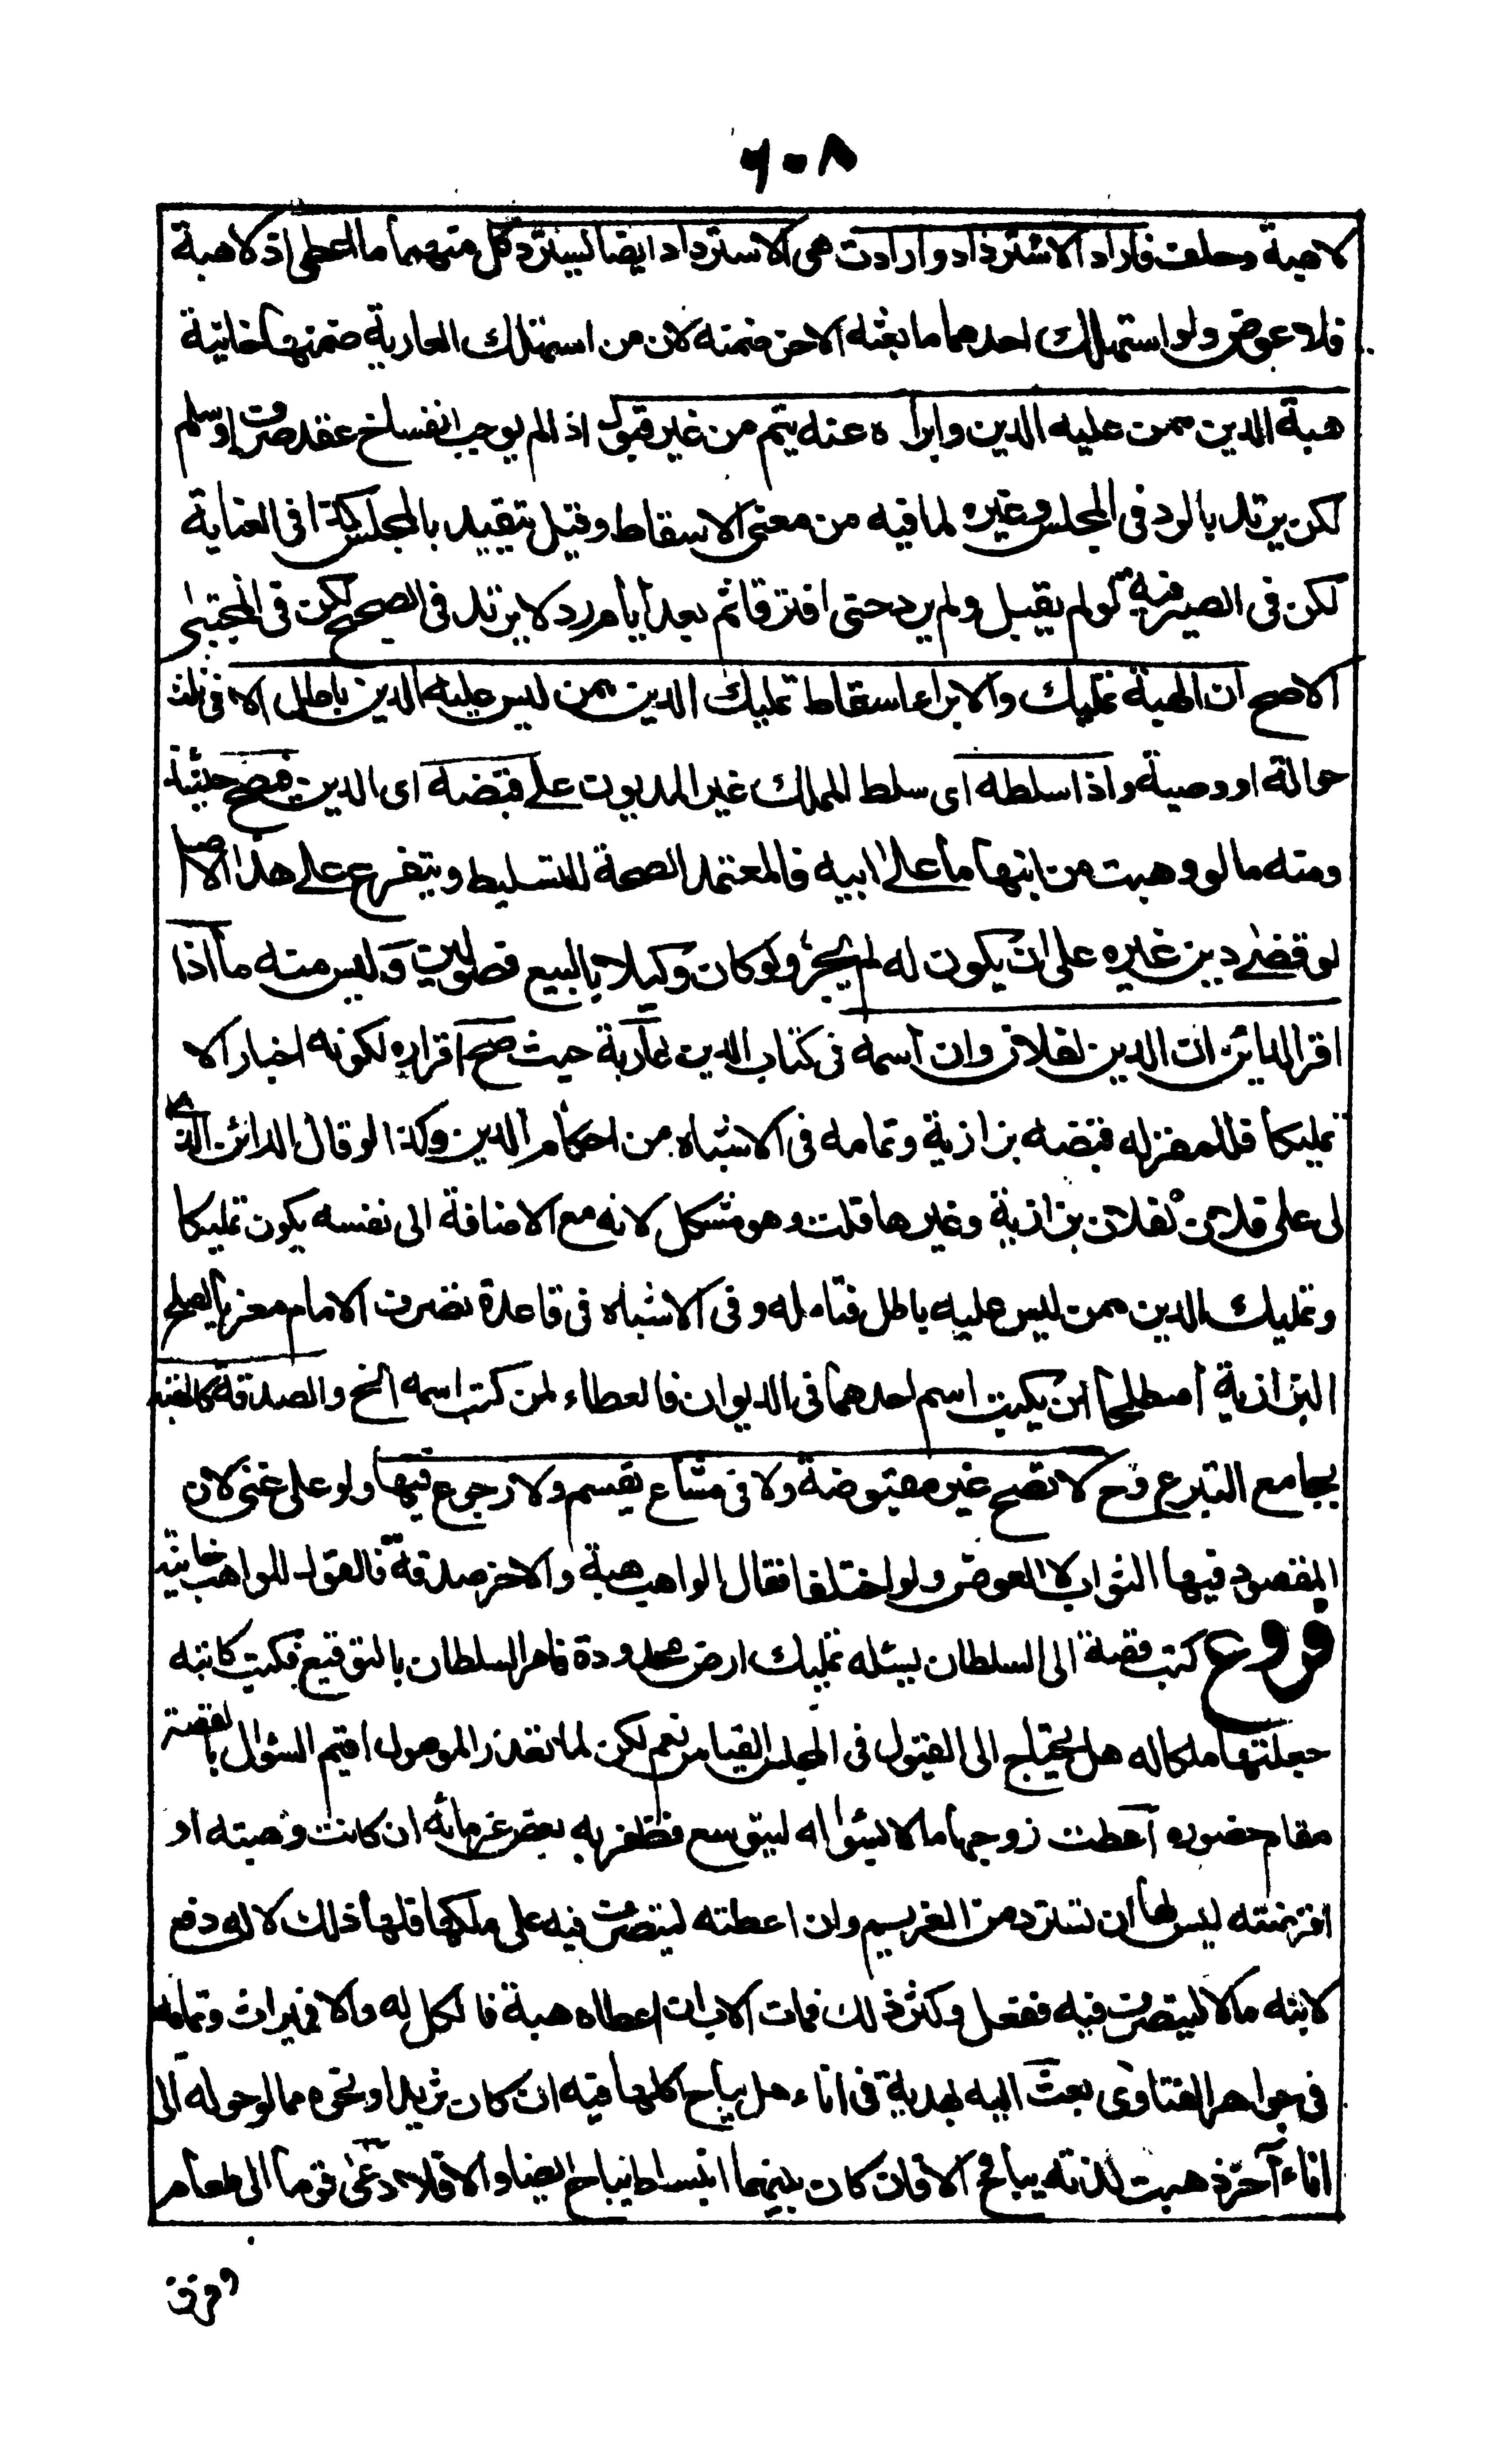 ٦٠٨
لا هبة وحلف فاراد الاسترداد وارادت هى الاسترداد ايضا ليسترد كل منهما ما اعطى اذ لا هبة
فلا عوض ولو استهلك احدهما ما بعثه الاخر ضمنه لان من استهلك العارية ضمنها خانية
هبة الدين ممن عليه الدين وابراءه عنه يتم من غير قبول اذا لم يوجب انفساخ عقد صرف او سلم
لكن يرتد بالرد فى المجلس وغيره لما فيه من معنى الاسقاط وقيل يتقيد بالمجلس كذا فى العناية
لكن فى الصيرفية لو لم يقبل ولم يرد حتى افترقا ثم بعد أيام رد لا يرتد فى الصحيح لكن فى المجتبى
الاصح ان الهبة تمليك والابراء اسقاط تمليك الدين ممن ليس عليه الدين باطل الا فى ثلث
حوالة او وصية واذا سلطه اى سلط المملك غير المديون على قبضه اى الدين فيصح حينئذ
ومنه ما لو وهبت من ابنها ما على ابيه فالمعتمد الصحة للتسليط ويتفرع على هذا الاصل
لو قضى دين غيره على ان يكون له لم يجز ولو كان وكيلا بالبيع فصولين وليس منه ما اذا
اقر الدائن ان الدين لفلان وان اسمه فى كتاب الدين عارية حيث صح اقراره لكونه اخبارا لا
تمليكا فللمقر له قبضه بزازية وتمامه فى الاشباه من احكام الدين وكذا لو قال الدائن الذى
لى على فلان لفلان بزازية وغيرها قلت وهو مشكل لانه مع الاضافة الى نفسه يكون تمليكا
وتمليك الدين ممن ليس عليه باطل فتامله وفى الاشباه فى قاعدة تصرف الامام معزيا لصلح
البزازية اصطلحا ان يكتب اسم احدهما فى الديوان فالعطاء لمن كتب اسمه الخ والصدقة كالهبة
بجامع التبرع وح لا تصح غير مقبوضة ولا فى مشاع يقسم ولا رجوع فيها ولو على غنى لان
المقصود فيها الثواب لا العوض ولو اختلفا فقال الواهب هبة والاخر صدقة فالقول للواهب خانية
فروع كتب قصة الى السلطان يسئله تمليك ارض محدودة فامر السلطان بالتوقيع فكتب كاتبه
جعلتها ملكا له هل يحتاج الى القبول فى المجلس القياس نعم لكن لما تعذر الوصول اقيم السؤال بالقصة
مقام حضوره اعطت زوجها مالا بسؤاله ليتوسع فظفر به بعض غرمائه ان كانت وهبته او
اقرضته ليس لها ان تسترد من الغريم وان اعطته ليتصرف فيه على ملكها فلها ذلك لا له دفع
لابنه مالا ليتصرف فيه ففعل وكثر ذلك فمات الاب ان اعطاه هبة فالكل له والا فميراث وتمامه
فى جواهر الفتاوى بعث اليه بهدية فى اناء هل يباح اكلها فيه ان كان ثريدا ونحوه مما لو حوله الى
اناء آخر ذهبت لذته يباح والا فان كان بينهما انبساط يباح ايضا والا فلا دعى قوما الى طعام
وفرق